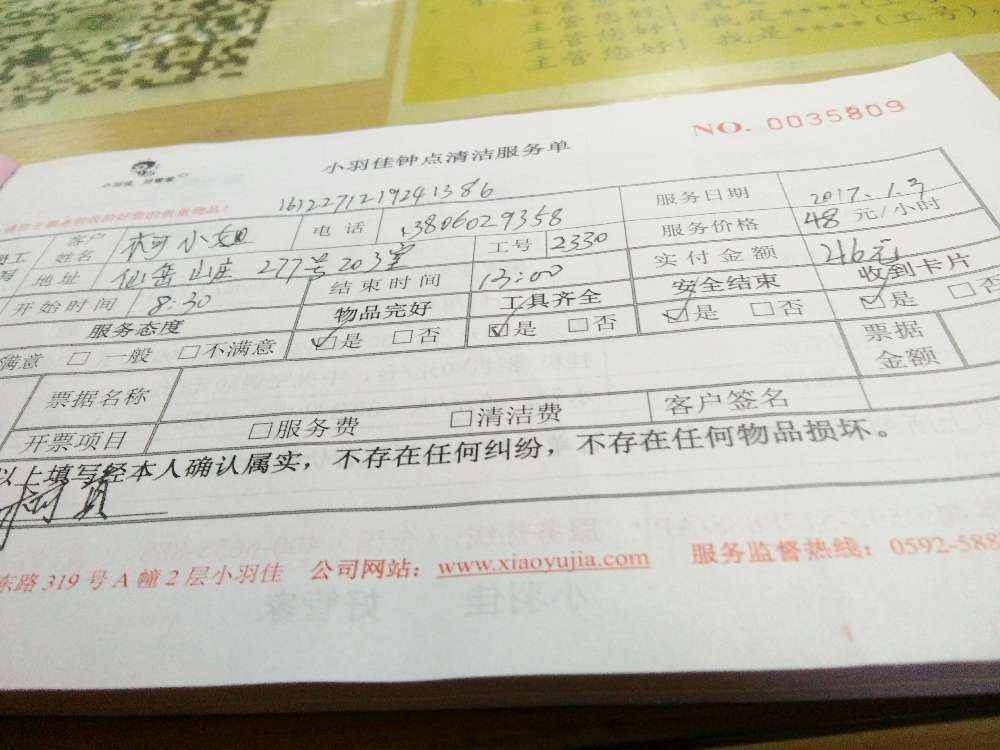 主管您好! 我是
主管您好! 我是****(工号)
主管您好! 我是****(工号)
NO. 0035809
小羽佳 好管家
小羽佳钟点清洁服务单
1612271219241386
客户姓名 柯小姐 电话 13806029358 服务日期 2017.1.3
地址 仙岳山庄277号203室 工号 2330 服务价格 48 元/小时
开始时间 8:30 结束时间 13:00 实付金额 216元
服务态度 物品完好 工具齐全 安全结束 收到卡片
满意 □一般 □不满意 ☑是 □否 ☑是 □否 ☑是 □否 ☑是 □否
票据名称 票据金额
开票项目 □服务费 □清洁费 客户签名
以上填写经本人确认属实，不存在任何纠纷，不存在任何物品损坏。
东路319号A幢2层小羽佳 公司网站：www.xiaoyujia.com 服务监督热线：0592-588